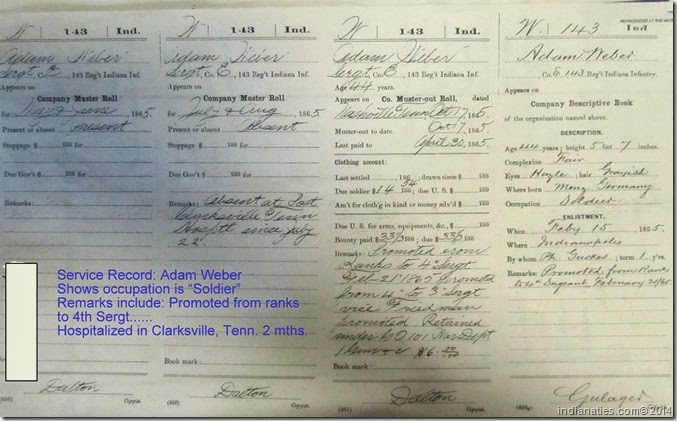 W | 143 | Ind.
Adam Weber
Sergt, Co. E, 143 Reg't Indiana Inf.
Appears on
Company Muster Roll
for May & June, 1865.
Present or absent Present
Stoppage, $ 100 for
Due Gov't $ 100 for
Remarks:
Book mark:
Dalton
(358) Copyist.
W | 143 | Ind.
Adam Weber
Sergt, Co. E, 143 Reg't Indiana Inf.
Appears on
Company Muster Roll
for July & Aug, 1865.
Present or absent Absent
Stoppage, $ 100 for
Due Gov't $ 100 for
Remarks: Absent at Post
Clarksville Tenn
since July
22
Book mark:
Dalton
(358) Copyist.
W | 143 | Ind.
Adam Weber
Sergt, Co. E, 143 Reg't Indiana Inf.
Age 44 years.
Appears on Co. Muster-out Roll, dated
Nashville Tenn Oct 17, 1865.
Muster-out to date Oct 17, 1865.
Last paid to April 30, 1865.
Clothing account:
Last settled, 186 ; drawn since $ 100
Due soldier $14 ; due U. S. $ 100
Am't for cloth'g in kind or money adv'd $ 100
Due U. S. for arms, equipments, &c., $ 100
Bounty paid $33⅓ ; due $33⅓
Remarks: Promoted from
Ranks to 4" Sergt
Feb 21" 1865 Promoted
from 4" to 3" Sergt
vice
promoted Retained
under GO 101 War Dept
$6.
Book mark:
Dalton
(361) Copyist.
REPRODUCED AT THE
W. | 143 | Ind
Adam Weber
Co. E, 143 Reg't Indiana Infantry.
Appears on
Company Descriptive Book
of the organization named above.
DESCRIPTION.
Age 44 years; height 5 feet 7 inches.
Complexion Fair
Eyes ; hair Grayish
Where born Germany
Occupation Soldier
ENLISTMENT.
When Feby 15, 1865.
Where Indianapolis
By whom ; term 1 y'rs.
Remarks: Promoted from Ranks
to 4th February
Gulager
Copyist.
Service Record: Adam Weber
Shows occupation is “Soldier”
Remarks include: Promoted from ranks
to 4th Sergt......
Hospitalized in Clarksville, Tenn. 2 mths.
indianaties.com©2014